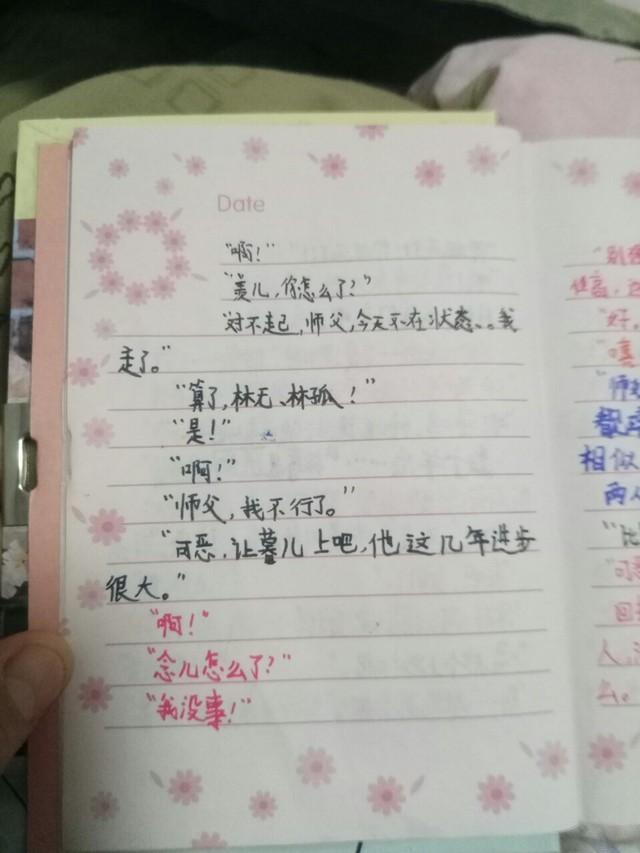 Date
"啊！"
"羡儿，你怎么了？"
"对不起，师父，今天不在状态、。我
走了。"
"算了，林无、林孤！"
"是！"
"啊！"
"师父，我不行了。"
"可恶，让暮儿上吧，他这几年进步
很大。"
"啊！"
"念儿怎么了？"
"我没事！"
"好，
"嘻
"师
都
相似
两人
"比
"可
回
人，
么。